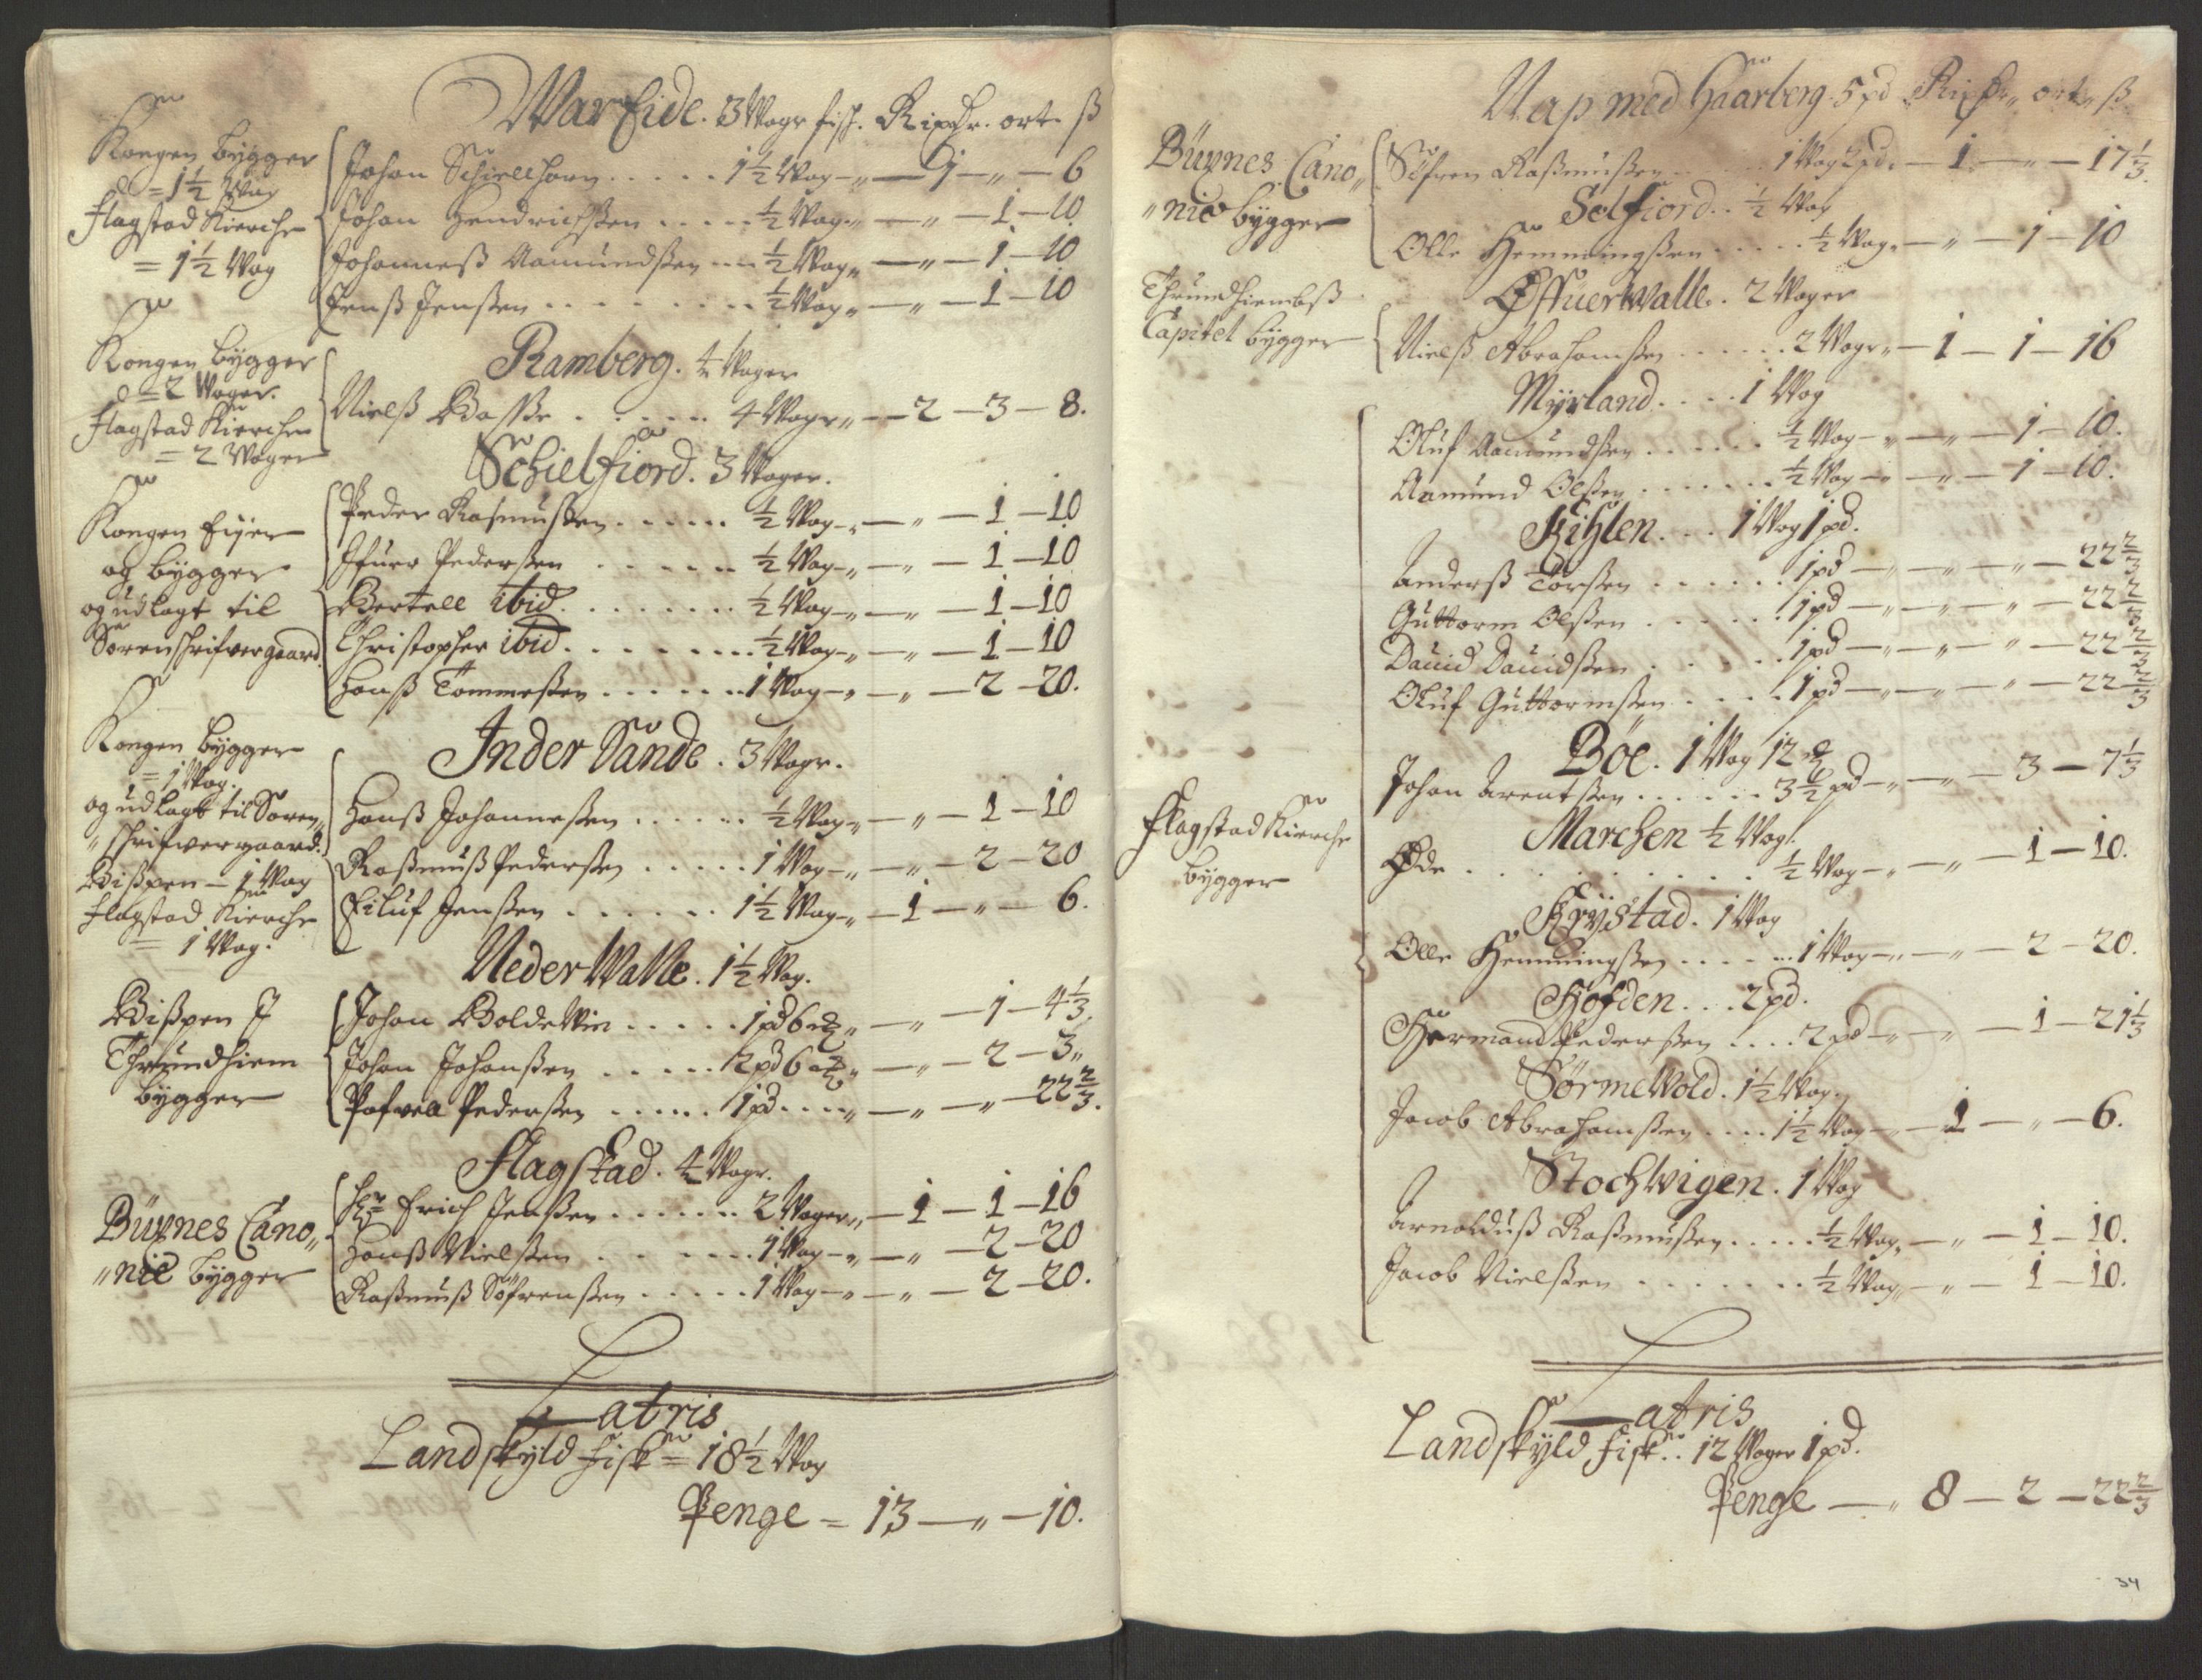 Warfide. 3 Woger fisk. Rixdr. ort. ß
Kongen bÿgger
= 1½ Wog
Flagstad Kierche
= 1½ Wog
Johan Schiellhorn . . . . . 1½ Wog -„- 1 -„- 6
Johan Hendrichßen . . . . ½ Wog -„-„- 1 - 10
Johanneß Aamundßen . . . ½ Wog„ -„- 1 - 10
Jenß Jenßen . . . . . . . . ½ Wog„ -„- 1 - 10
Ramberg. 4 Woger
Kongen bÿgger
= 2 Woger.
Flagstad Kierche
= 2 Woger
Nielß Basse . . . . . . 4 Woger„ - 2 - 3 - 8.
Schielfiord. 3 Woger.
Kongen Eÿer
og bÿgger
og udlagt til
Sorenskrifvergaard.
Peder Rasmußen . . . . . ½ Wog -„-„- 1 - 10
Ifuer Pederßen . . . . . . ½ Wog -„-„- 1 - 10
Bertell ibid. . . . . . . . ½ Wog -„-„- 1 - 10
Christopher ibid. . . . . . . . ½ Wog -„-„- 1 - 10
Hanß Tommeßen . . . . . . 1 Wog -„-„- 2 - 20.
Inder Sande. 3 Woger.
Kongen bÿgger
= 1 Wog.
og udlagt til Soren„
„skrifvergaard.
Bißpen - 1 Wog
Flagstad Kierche
= 1 Wog.
Hanß Johanneßen . . . . . ½ Wog -„-„- 1 - 10
Raßmuß Pederßen . . . . . 1 Wog -„-„- 2 - 20
Eiluf Jenßen . . . . . . 1½ Wog„ - 1 -„- 6.
Neder Walle. 1½ Wog.
Bißpen I
Thrundhiem
bÿgger
Johan Boldewin . . . . . 1 pd 6 „ -„- 1 - 4⅓.
Johan Johanßen . . . . . 2 pd 6 „ -„- 2 - 3„
Pofwell Pederßen . . . . . 1 pd . . . „ -„-„- 22⅔.
Flagstad. 4 Woger.
Büxnes Cano„
„nie bÿgger
Hr Erich Jenßen . . . . . . . 2 Woger„ - 1 - 1 - 16
Hanß Nielßen . . . . . . . 1 Wog -„-„- 2 - 20
Raßmuß Söfrenßen . . . . . 1 Wog -„-„- 2 - 20.
Latris
Landskÿld fisk = 18½ Wog
Penge = 13 -„- 10.
Nap med Haarberg 5 pd Rixdr„ ort„ ß
Büxnes Cano„
„nie bÿgger
Söfren Raßmußen . . . . . 1 Wog 2 pd. - 1. -„- 17⅓.
Selfiord. . ½ Wog
Olle Hemmingßen . . . . . ½ Wog„ -„- 1 - 10
Øffuerwalle. . 2 Woger
Thrundhiembß
Capitel bÿgger
Nielß Abrahamßen . . . . . . 2 Woger„ - 1 - 1 - 16
Mÿrland. . . . 1 Wog
Oluf Aamundßen . . . . . . ½ Wog -„-„- 1 - 10.
Aamund Olßen . . . . . . . ½ Wog -„-„- 1 - 10.
Kihlen. . . . 1 Wog 1 pd.
Anderß Torßen . . . . . . 1 pd -„-„-„- 22⅔
Guttorm Olßen . . . . . . 1 pd -„-„-„- 22⅔
Dauid Dauidßen . . . . . 1 pd -„-„-„- 22⅔
Oluf Guttormßen . . . . 1 pd -„-„-„- 22⅔
Böe. 1 Wog 12
Johan Arentßen . . . . . . 3½ pd -„-„- 3 - 7⅓
Marchen ½ Wog.
Flagstad Kierche
bÿgger
Øde . . . . . . . . . . . ½ Wog -„-„- 1 - 10.
Krÿstad. 1 Wog
Olle Hemmingßen . . . . . 1 Wog -„-„- 2 - 20.
Hofden. . . . 2 pd.
Hermand Pederßen . . . . 2 pd -„-„- 1 - 21⅓
Sörmewold. 1½ Wog.
Jacob Abrahamßen . . . . 1½ Wog -„- 1 -„- 6.
Stochwigen. 1 Wog
Arnolduß Raßmußen . . . . . ½ Wog„ -„- 1 - 10.
Jacob Nielßen . . . . . . . ½ Wog„ -„- 1 - 10.
Latris
Landskÿld Fisk. . 12 Woger 1 pd.
Penge -„ 8 - 2 - 22⅔
34